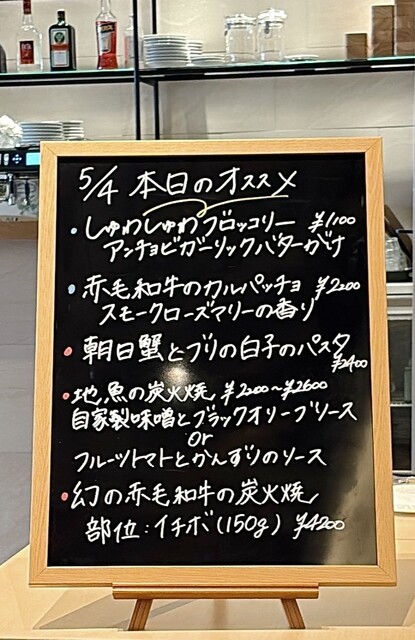 5/4 本日のオススメ
・しゅわしゅわブロッコリー ¥1100
アンチョビガーリックバターがけ
・赤毛和牛のカルパッチョ ¥2200
スモークローズマリーの香り
・朝日蟹とブリの白子のパスタ
¥2400
・地魚の炭火焼 ¥2200〜¥2600
自家製味噌とブラックオリーブソース
or
フルーツトマトとかんずりのソース
・幻の赤毛和牛の炭火焼
部位:イチボ(150g) ¥4200